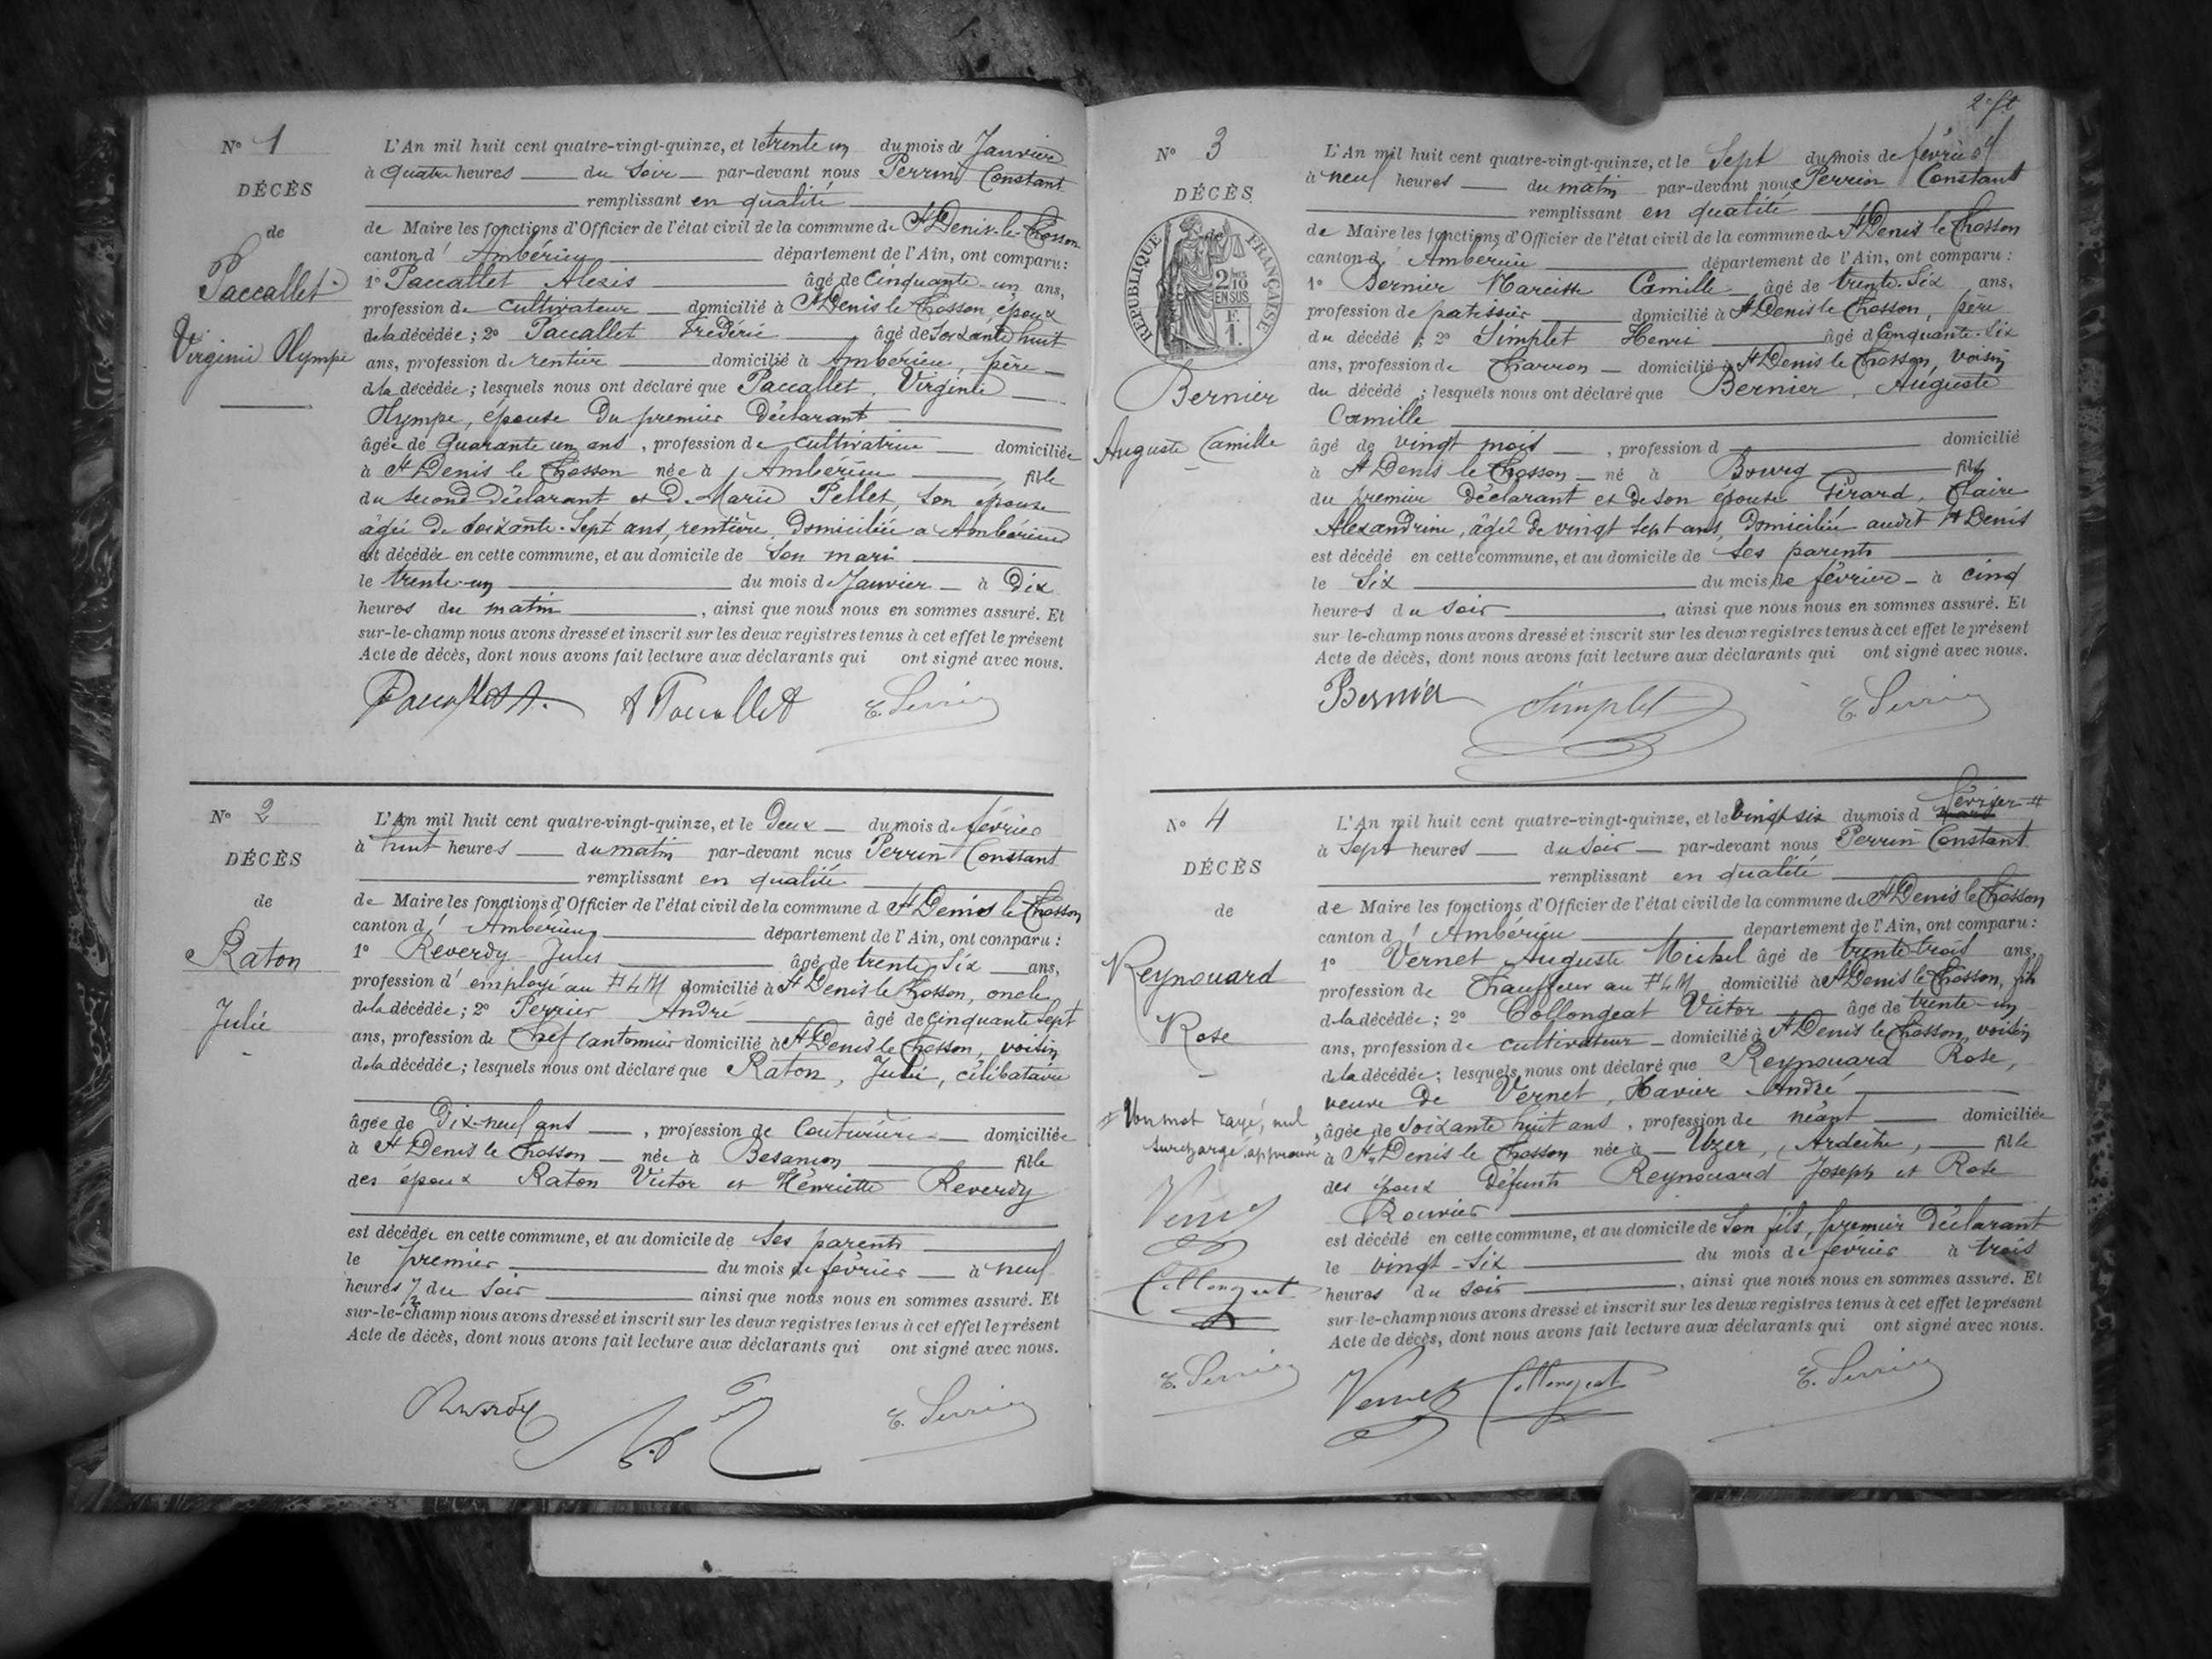 N° 1
DÉCÈS
de
Paccallet
Virginie Olympe
L'An mil huit cent quatre-vingt-quinze, et le trente un du mois de Janvier
à quatre heures du soir par-devant nous Perrin Constant
remplissant en qualité
de Maire les fonctions d'Officier de l'état civil de la commune de St Denis-le-Chosson
canton d' Ambérieu département de l'Ain, ont comparu :
1° Paccallet Alexis âgé de Cinquante-un ans,
profession de cultivateur domicilié à St Denis le Chosson, époux
de la décédée ; 2° Paccallet Frédéric âgé de Soixante huit
ans, profession de rentier domicilié à Ambérieu, père
de la décédée ; lesquels nous ont déclaré que Paccallet, Virginie
Olympe, épouse du premier déclarant
âgée de Quarante un ans, profession de cultivatrice domiciliée
à St Denis le Chosson née à Amberieu fille
du second déclarant et d. Marie Pellet, son épouse
âgée de soixante-sept ans, rentière, domiciliée a Ambérieu
est décédée en cette commune, et au domicile de son mari
le trente-un du mois de Janvier à Dix
heures du matin, ainsi que nous nous en sommes assuré. Et
sur-le-champ nous avons dressé et inscrit sur les deux registres tenus à cet effet le présent
Acte de décès, dont nous avons fait lecture aux déclarants qui ont signé avec nous.
Paccallet A. Paccallet
N° 2
DÉCÈS
de
Raton
Julie
L'An mil huit cent quatre-vingt-quinze, et le Deux du mois de février
à huit heures du matin par-devant nous Perrin Constant
remplissant en qualité
de Maire les fonctions d'Officier de l'état civil de la commune d St Denis le Chosson
canton d' Ambérieu département de l'Ain, ont comparu :
1° Reverdy Jules âgé de trente Six ans,
profession d' employé au domicilié à St Denis le Chosson, oncle
de la décédée ; 2° Perrier André âgé de Cinquante Sept
ans, profession de Chef cantonnier domicilié à St Denis le Chosson, voisin
de la décédée ; lesquels nous ont déclaré que Raton, Julie, célibataire
âgée de Dix-neuf ans, profession de Couturière domiciliée
à St Denis le Chosson née à Besançon fille
des époux Raton Victor et Henriette Reverdy
est décédée en cette commune, et au domicile de ses parents
le premier du mois de février à neuf
heures ½ du soir ainsi que nous nous en sommes assuré. Et
sur-le-champ nous avons dressé et inscrit sur les deux registres tenus à cet effet le présent
Acte de décès, dont nous avons fait lecture aux déclarants qui ont signé avec nous.
Reverdy
N° 3
DÉCÈS
de
RÉPUBLIQUE FRANÇAISE
2/10
EN SUS
F.
1.
Bernier
Auguste Camille
L'An mil huit cent quatre-vingt-quinze, et le Sept du mois de février
à neuf heures du matin par-devant nous Perrin Constant
remplissant en qualité
de Maire les fonctions d'Officier de l'état civil de la commune d St Denis le Chosson
canton d' Ambérieu département de l'Ain, ont comparu :
1° Bernier Narcisse Camille âgé de trente-Six ans,
profession de patissier domicilié à St Denis le Chosson, père
du décédé ; 2° Simplet Henri âgé de Cinquante-Six
ans, profession de Charron domicilié à St Denis le Chosson, voisin
du décédé ; lesquels nous ont déclaré que Bernier, Auguste
Camille
âgé de vingt mois, profession d domicilié
à St Denis le Chosson né à Bourg fils
du premier déclarant et de son épouse Pérard, Claire
Alexandrine, âgée de vingt sept ans, domiciliée audit St Denis
est décédé en cette commune, et au domicile de ses parents
le Six du mois de février à cinq
heures du soir, ainsi que nous nous en sommes assuré. Et
sur-le-champ nous avons dressé et inscrit sur les deux registres tenus à cet effet le présent
Acte de décès, dont nous avons fait lecture aux déclarants qui ont signé avec nous.
Bernier Simplet
N° 4
DÉCÈS
de
Reynouard
Rose
Un mot rayé, nul
surchargé, approuvé
Vernet
Collongeat
L'An mil huit cent quatre-vingt-quinze, et le vingt six du mois d février
à Sept heures du soir par-devant nous Perrin Constant
remplissant en qualité
de Maire les fonctions d'Officier de l'état civil de la commune de St Denis le Chosson
canton d' Ambérieu département de l'Ain, ont comparu :
1° Vernet Auguste Michel âgé de trente trois ans,
profession de Chauffeur au domicilié à St Denis le Chosson, fils
de la décédée ; 2° Collongeat Victor âgé de trente-un
ans, profession de cultivateur domicilié à St Denis le Chosson, voisin
de la décédée ; lesquels nous ont déclaré que Reynouard Rose,
veuve de Vernet, Xavier André
âgée de Soixante huit ans, profession de néant domiciliée
à St Denis le Chosson née à Uzer, Ardèche, fille
des époux défunts Reynouard Joseph et Rose
Rouvier
est décédé en cette commune, et au domicile de son fils, premier Déclarant
le vingt-Six du mois de février à trois
heures du soir, ainsi que nous nous en sommes assuré. Et
sur-le-champ nous avons dressé et inscrit sur les deux registres tenus à cet effet le présent
Acte de décès, dont nous avons fait lecture aux déclarants qui ont signé avec nous.
Vernet Collongeat